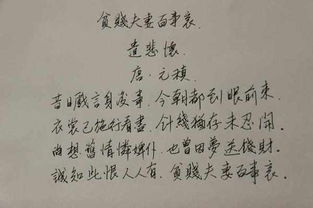 貧賤夫妻百事哀.
遣悲懷.
唐·元稹
昔日戲言身後事,今朝都到眼前來,
衣裳已施行看盡,針綫猶存未忍開.
尚想舊情憐婢僕,也曾因夢送錢財.
誠知此恨人人有,貧賤夫妻百事哀.